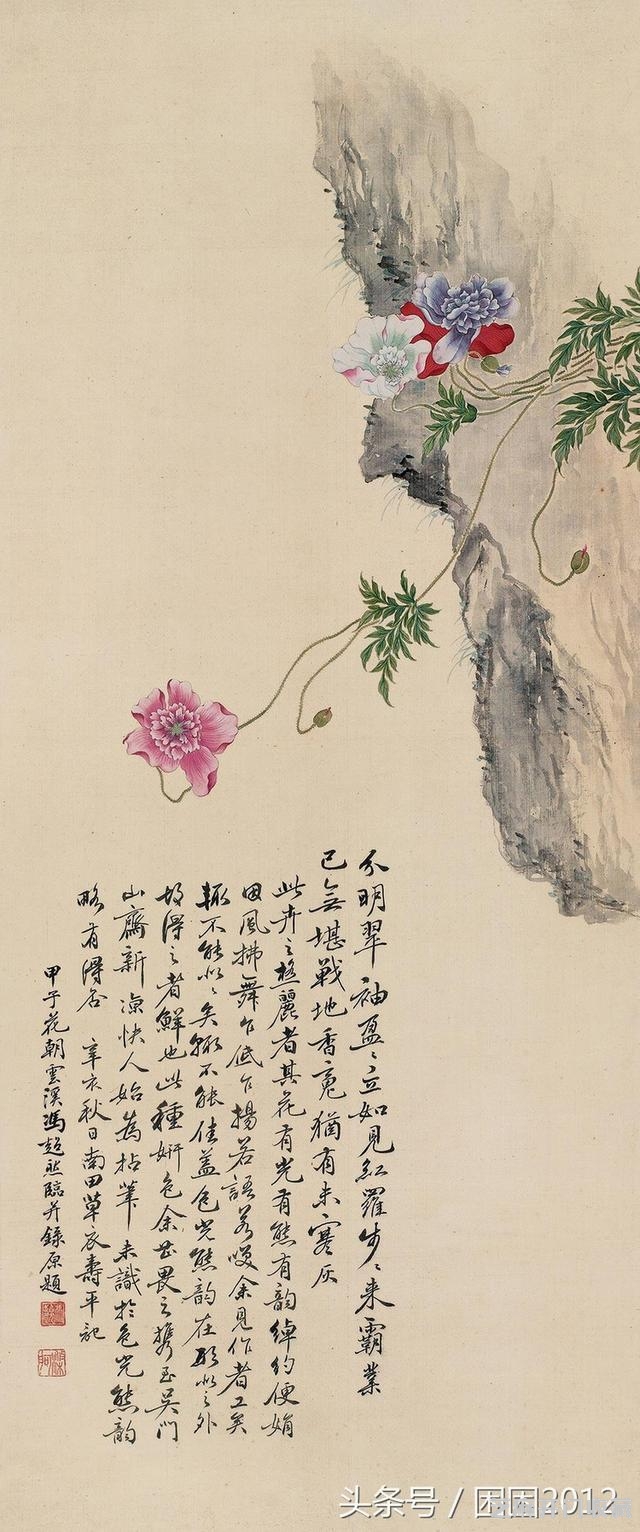 分明翠袖盈〻立如見紅羅步〻来霸業
已無堪戰地香竟猶有未寒灰
此卉之極麗者其花有光有態有韵綽約便娟
因風拂舞乍低乍揚若語若咲余見作者工矣
輒不能似〻矣輒不能佳蓋色光態韵在形似之外
故得之者鮮也此種妍色余甚畏之携至吳門
山齋新凉快人始為拈筆未識於色光態韵
略有得否 辛亥秋日南田草衣壽平記
甲子花朝雲溪馮超然臨并錄原題
头条号 / 困困2012